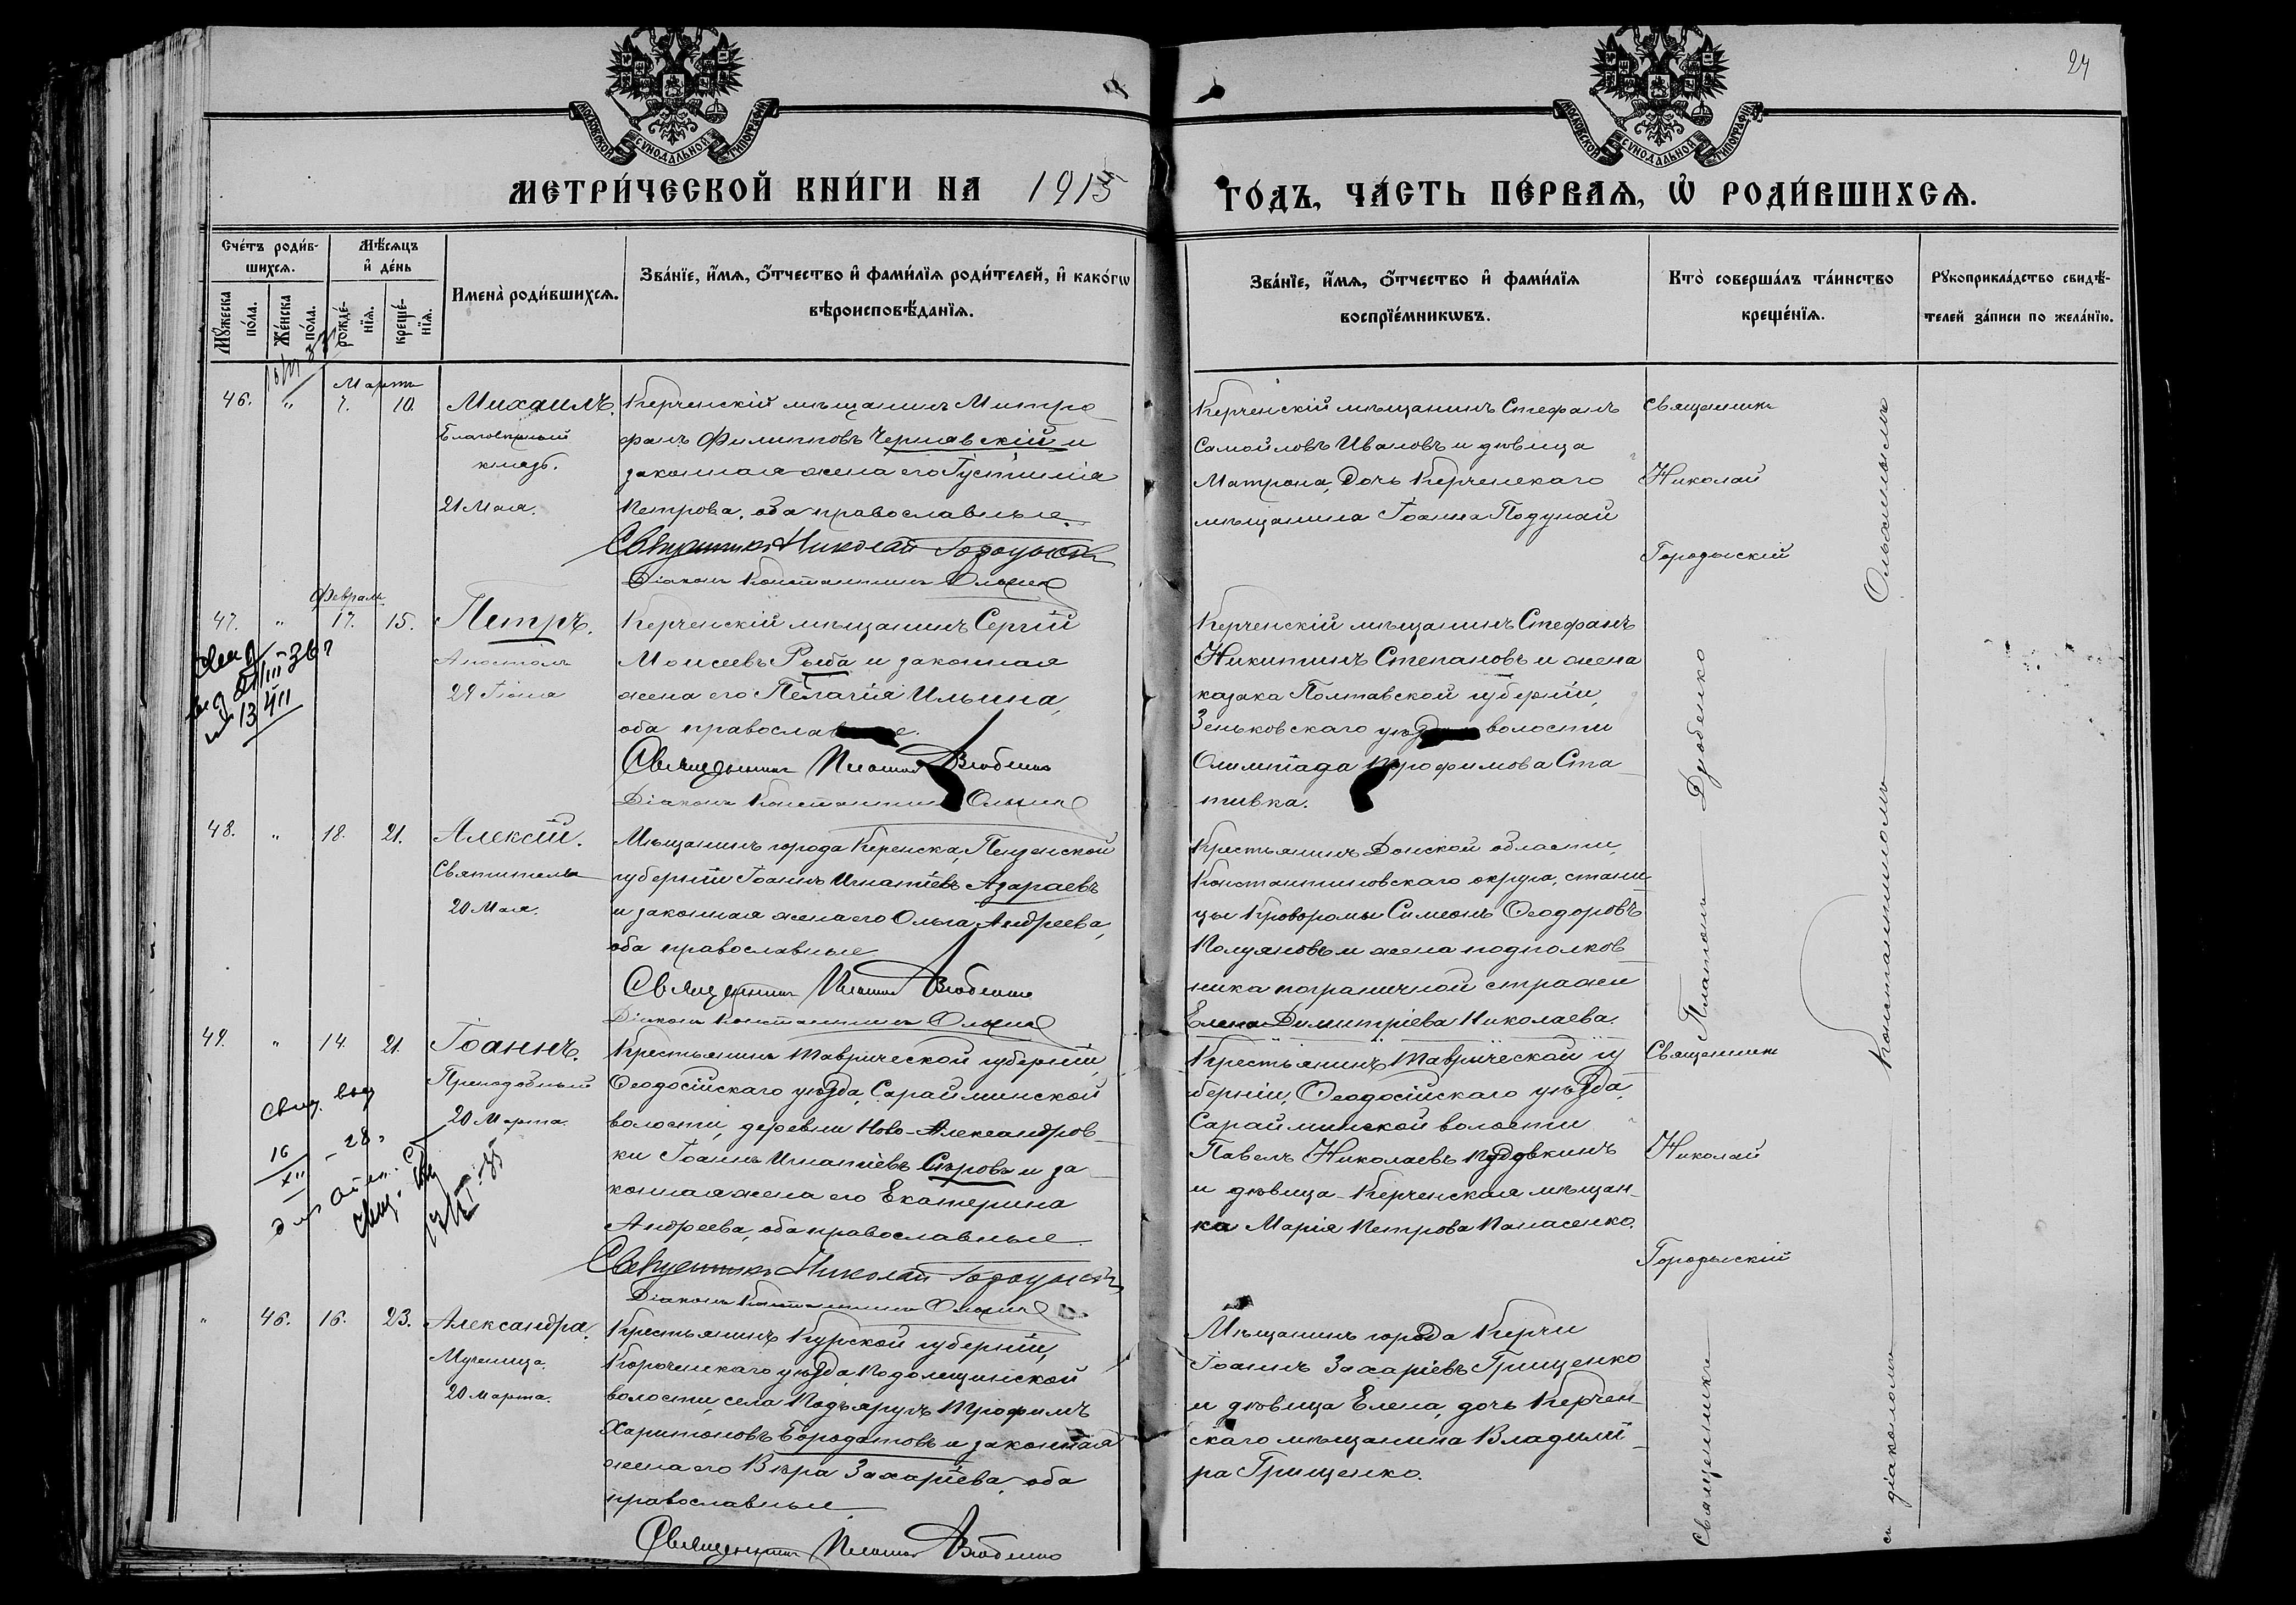 24
МОСКОВСКОЙ СѴНОДАЛЬНОЙ ТИПОГРАФІИ
МОСКОВСКОЙ СѴНОДАЛЬНОЙ ТИПОГРАФІИ
МЕТРИ́ЧЕСКОЙ КНИ́ГИ НА 1915
ГО́ДЪ, ЧА́СТЬ ПЕ́РВАѦ, Ѡ҆ РОДИ́ВШИХСѦ.
Сче́тъ роди́в-
шихсѧ.
Мꙋ́жеска
по́ла.
Же́нска
по́ла.
Мѣ́сѧцъ
и҆ де́нь
рожде́-
нїѧ.
креще́-
нїѧ.
Имена̀ роди́вшихсѧ.
Зва́нїе, и҆́мѧ, ѻ҆́тчество и҆ фами́лїѧ роди́телей, и҆ како́гѡ
вѣроисповѣ́данїѧ.
Зва́нїе, и҆́мѧ, ѻ҆́тчество и҆ фами́лїѧ
воспрїе́мникѡвъ.
Кто̀ соверша́лъ та́инство
креще́нїѧ.
Рꙋкоприкла́дство свидѣ́-
телей за́писи по жела́нїю.
Мартъ
46. " 7. 10. Михаилъ.
Благовѣрный
князь.
21 Мая.
Керченскій мѣщанинъ Митро-
фанъ Филипповъ Чернавскій и
законная жена его Іустинія
Петрова, оба православные.
Священникъ Николай Городыскій
Діаконъ Константинъ
Керченскій мѣщанинъ Стефанъ
Самойловъ Ивановъ и дѣвица
Матрона, дочь Керченскаго
мѣщанина Іоанна Подунай
Священникъ
Николай
Городыскій
Февраль
47. " 17. 15. Петръ.
Апостолъ
29 Іюня
Керченскій мѣщанинъ Сергій
Моисеевъ Рыба и законная
жена его Пелагія Ильина,
оба православные.
Священникъ Платонъ
Діаконъ Константинъ
Керченскій мѣщанинъ Стефанъ
Никитинъ Степановъ и жена
казака Полтавской губерніи,
Зеньковскаго волости
Олимпіада Трофимова Ста-
тивка.
48. " 18. 21. Алексій.
Святителя
20 Мая.
Мѣщанинъ города Керенска, Пензенской
губерніи Іоаннъ Игнатіевъ Азараевъ
и законная жена его Ольга Андреева,
оба православные
Священникъ Платонъ
Діаконъ Константинъ
Крестьянинъ Донской области,
Константиновскаго округа, стани-
цы Симеонъ Ѳеодоровъ
Полуяновъ и жена подполков-
ника пограничной стражи
Елена Димитріева Николаева.
49. " 14. 21. Іоаннъ.
Преподобный
20 Марта.
Крестьянинъ Таврической губерніи,
Ѳеодосійскаго уѣзда, Сарайминской
волости, деревни Ново-Александров-
ки Іоаннъ Игнатіевъ Сѣровъ и за-
конная жена его Екатерина
Андреева, оба православные.
Священникъ Николай Городыскій
Діаконъ Константинъ
Крестьянинъ Таврической гу-
берніи, Ѳеодосійскаго уѣзда,
Сарайминской волости
Павелъ Николаевъ
и дѣвица Керченская мѣщан-
ка Марія Петрова Панасенко.
Священникъ
Николай
Городыскій
" 46. 16. 23. Александра.
Мученица.
20 Марта.
Крестьянинъ Курской губерніи,
Корочанскаго уѣзда,
волости, села Подъяругъ Трофимъ
Харитоновъ Бородатовъ и законная
жена его Вѣра Захаріева, оба
православные
Священникъ Платонъ
Мѣщанинъ города Керчи
Іоаннъ Захаріевъ Грищенко
и дѣвица Елена, дочь Керчен-
скаго мѣщанина Владими-
ра Грищенко.
Священникъ Платонъ
съ діакономъ Константиномъ